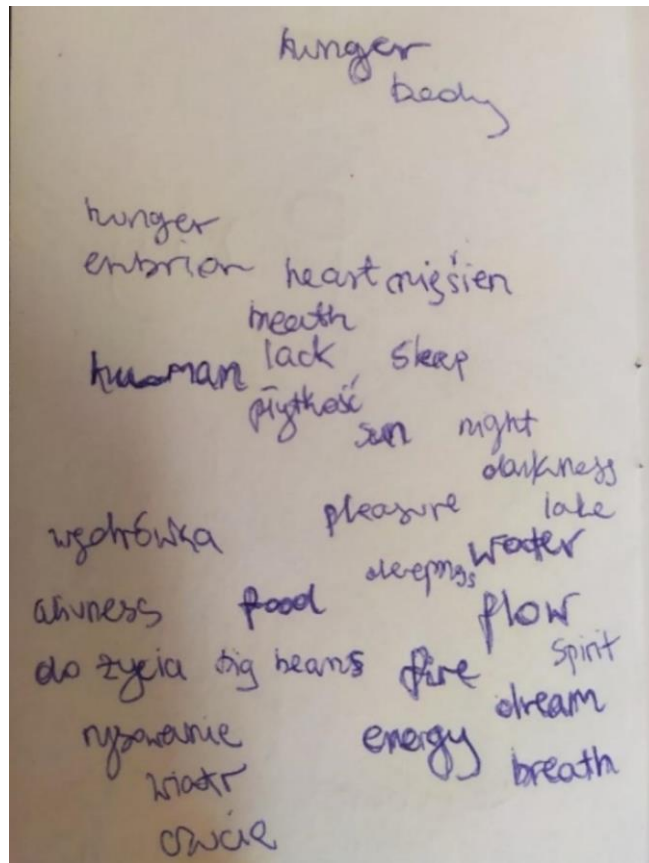 hunger
body
hunger
enbrion heart mięsien
breath
human lack sleep
płytkość
sun night
darkness
pleasure lake
wędrówka
water
alivness food flow
do życia big beans fire spirit
dream
rysowanie energy
wiatr breath